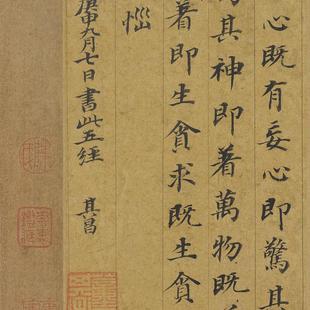 心既有妄心即驚其
其神即著萬物既
著即生貪求既生貪
惱
庚申九月七日書此五經 其昌